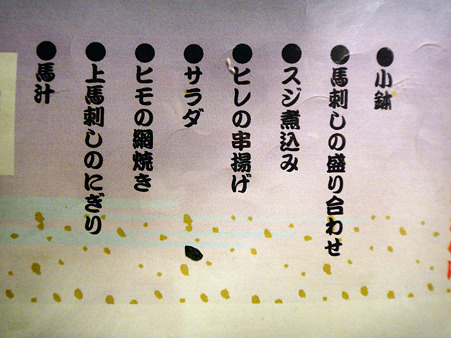 ●小鉢
●馬刺しの盛り合わせ
●スジ煮込み
●ヒレの串揚げ
●サラダ
●ヒモの網焼き
●上馬刺しのにぎり
●馬汁